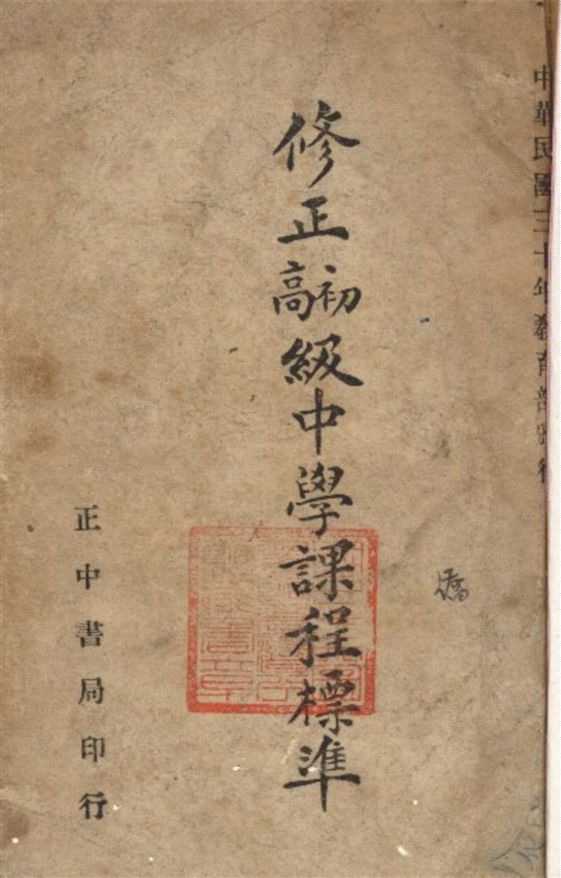 中華民國三十年教育部
修正初高級中學課程標準
正中書局印行